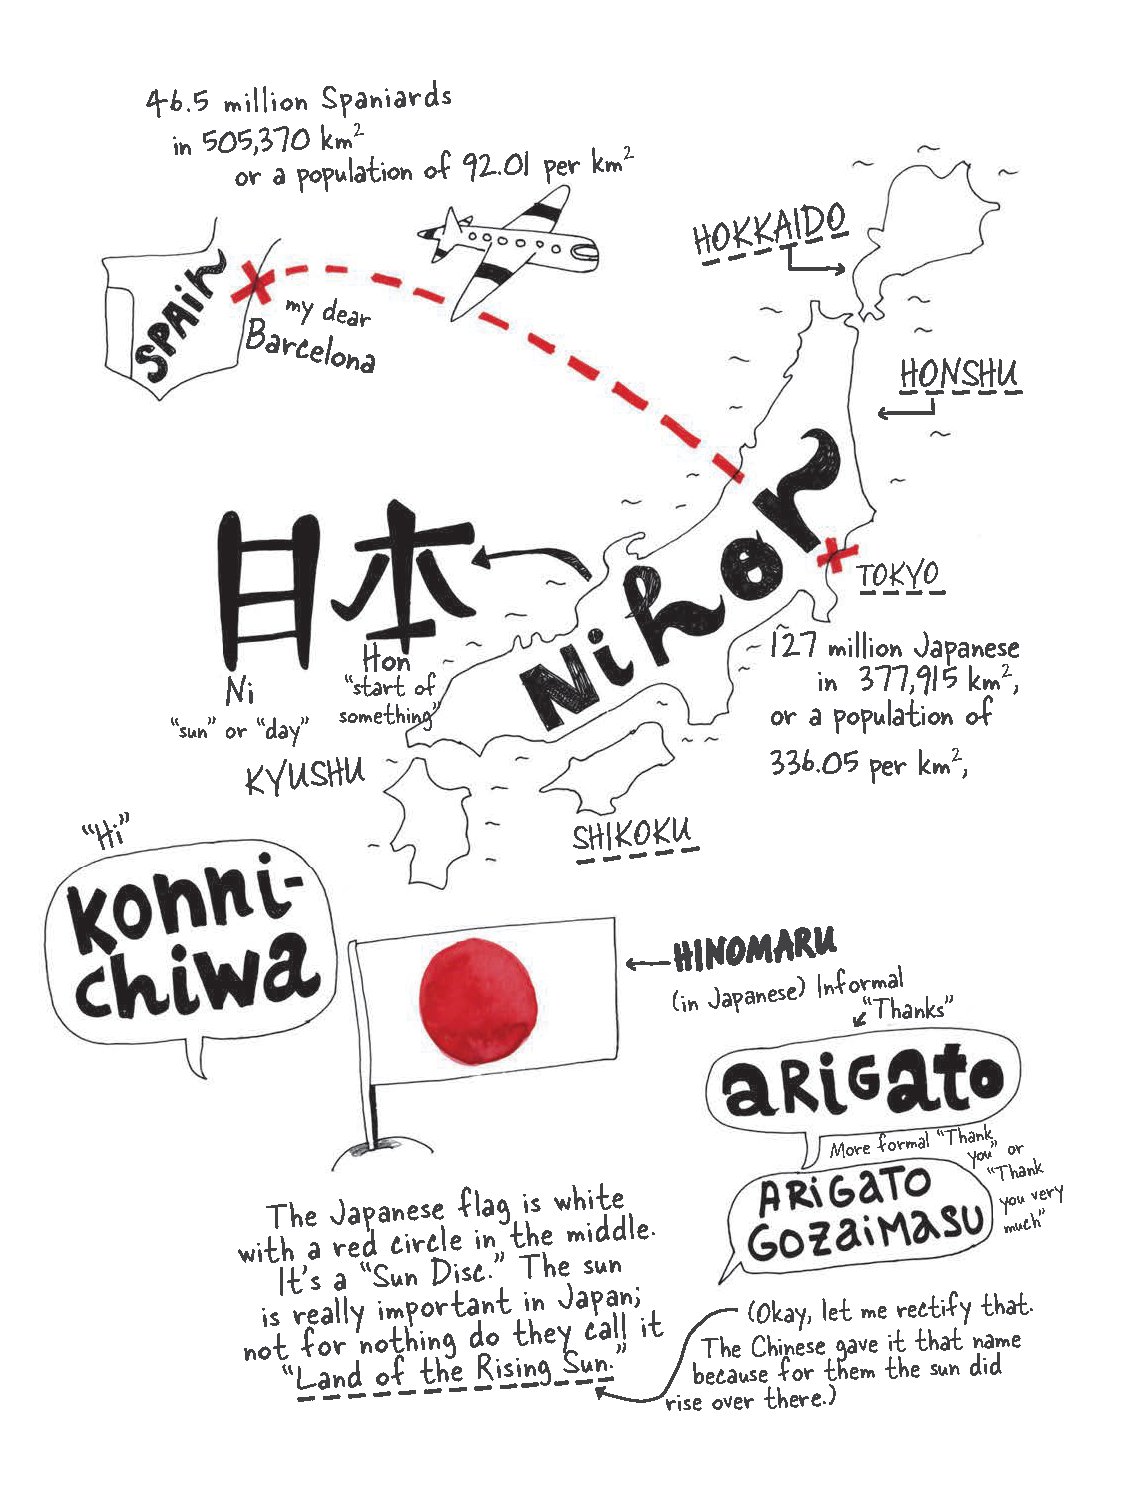 46.5 million Spaniards
in 505,370 km²
or a population of 92.01 per km²
SPAiN
my dear
Barcelona
HOKKAIDO
HONSHU
Nihon
日本
Ni
"sun" or "day"
Hon
"start of
something"
TOKYO
127 million Japanese
in 377,915 km²,
or a population of
336.05 per km²,
KYUSHU
SHIKOKU
"Hi"
Konni-
chiwa
HINOMARU
(in Japanese) Informal
"Thanks"
aRiGato
More formal "Thank
you" or
"Thank
you very
much"
ARiGaTO
GOZaiMaSU
The Japanese flag is white
with a red circle in the middle.
It's a "Sun Disc." The sun
is really important in Japan;
not for nothing do they call it
"Land of the Rising Sun."
(Okay, let me rectify that.
The Chinese gave it that name
because for them the sun did
rise over there.)